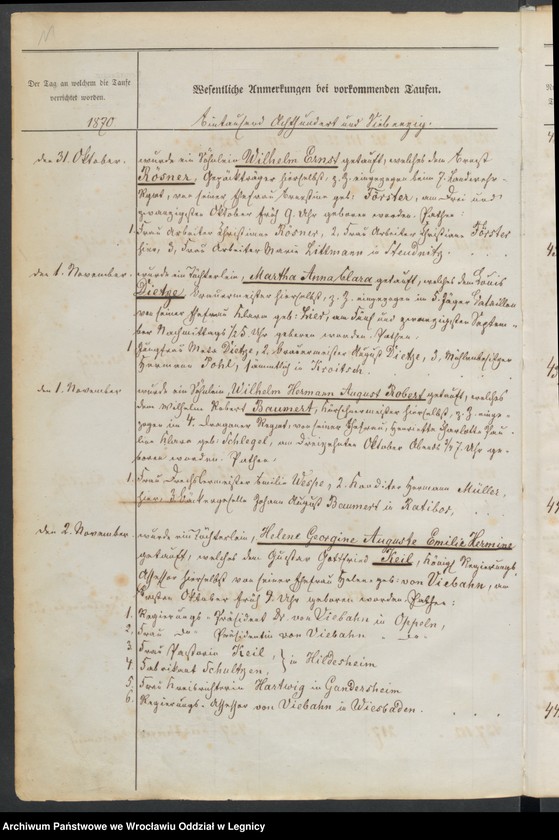 Der Tag an welchem die Taufe
verrichtet worden.
Wesentliche Anmerkungen bei vorkommenden Taufen.
1870
Eintausend Achthundert und Siebenzig.
den 31. Oktober.
wurde ein Söhnlein Wilhelm Ernst getauft, welches dem Ernst
Rosner, Gepäckträger hierselbst, z. Z. eingezogen beim 7. Landwehr-
Regmt, von seiner Ehefrau Ernestine geb: Förster, am Drei und
zwanzigsten Oktober früh 9 Uhr geboren worden. Pathen:
1. Frau Arbeiter Christiane Rösner, 2. Frau Arbeiter Christiane Förster
hier, 3, Frau Arbeiter Marie Littmann in Steudnitz.
den 1. November.
wurde ein Töchterlein, Martha Anna Clara getauft, welches dem Louis
Dietze, Brauermeister hierselbst, z. Z. eingezogen im 5. Jäger Bataillon
von seiner Ehefrau Clara geb: am Fünf und zwanzigsten Septem-
ber Nachmittags 1/2 5 Uhr geboren worden. Pathen:
1 Jungfrau Dietze, 2. Brauermeister August Dietze, 3. Mühlenbesitzer
Hermann Pohl, sämmtlich in Kroitsch.
den 1. November
wurde ein Söhnlein, Wilhelm Hermann August Robert getauft, welches
dem Wilhelm Robert Baumert, Kürschnermeister hierselbst, z. Z. einge-
zogen im 4. Dragoner Regmt. von seiner Ehefrau, Henriette Charlotte Pau-
line Clara geb: Schlegel, am dreizehnten Oktober Abends 1/2 7 Uhr ge-
boren worden. Pathen:
1. Frau Drechslermeister Emilie Wespe, 2. Konditor Hermann Müller,
hier, 3. Bäckergeselle Johann August Baumert in Ratibor,
den 2. November.
wurde ein Töchterlein, Helene Georgine Auguste Emilie Hermine
getauft, welches dem Gustav Gottfried Keil, Königl Regierungs-
Assessor hierselbst von seiner Ehefrau Helene geb: von Viebahn, am
Ersten Oktober früh 9 Uhr geboren worden. Pathen:
1. Regierungs-Präsident Dr. von Viebahn in Oppeln,
2. Frau Präsidentin von Viebahn
3. Frau Pastorin Keil, } in Hildesheim
4. Fabrikant Schultzen,
5. Frau Kreisrichterin Hartwig in Gandersheim
6. Regierungs-Assessor von Viebahn in Wiesbaden.
Archiwum Państwowe we Wrocławiu Oddział w Legnicy